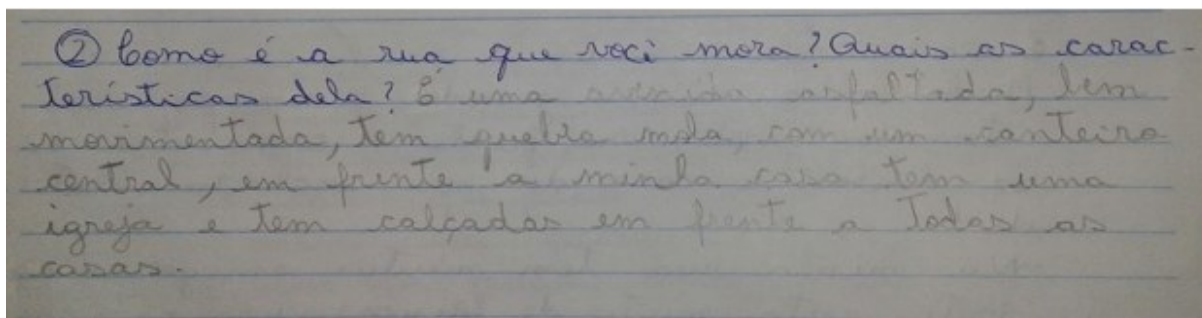 ② Como é a rua que você mora? Quais as carac-
terísticas dela? É uma avenida asfaltada, bem
movimentada, tem quebra mola, com um canteiro
central, em frente a minha casa tem uma
igreja e tem calçadas em frente a todas as
casas.